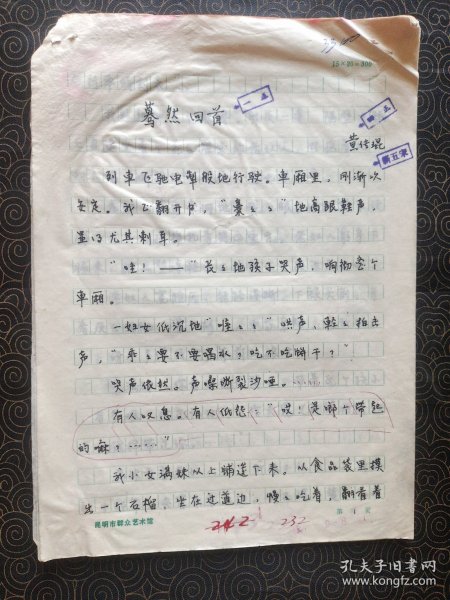 15×20=300
蓦然回首
一.五
四.五
黄佳琨
新五宋
列车飞驰电掣般地行驶。车厢里,刚渐次
安定。我正翻开书,“橐々々”地高跟鞋声,
显得尤其刺耳。
“哇!——”长々地孩子哭声,响彻整个
车厢。
一妇女低沉地“喔々々”哄声,轻々拍击
声,“乖々要不要喝水?吃不吃饼干?”
哭声依然。声嘶裂沙哑。……
有人叹息。有人低怨:“哎!是哪个带起
的嘛?……”
我小女满妹从上铺遛下来。从食品袋里摸
出一个石榴,坐在过道边,慢々吃着,翻看着
昆明市群众艺术馆
242
232
第 1 页
孔夫子旧书网
www.kongfz.com